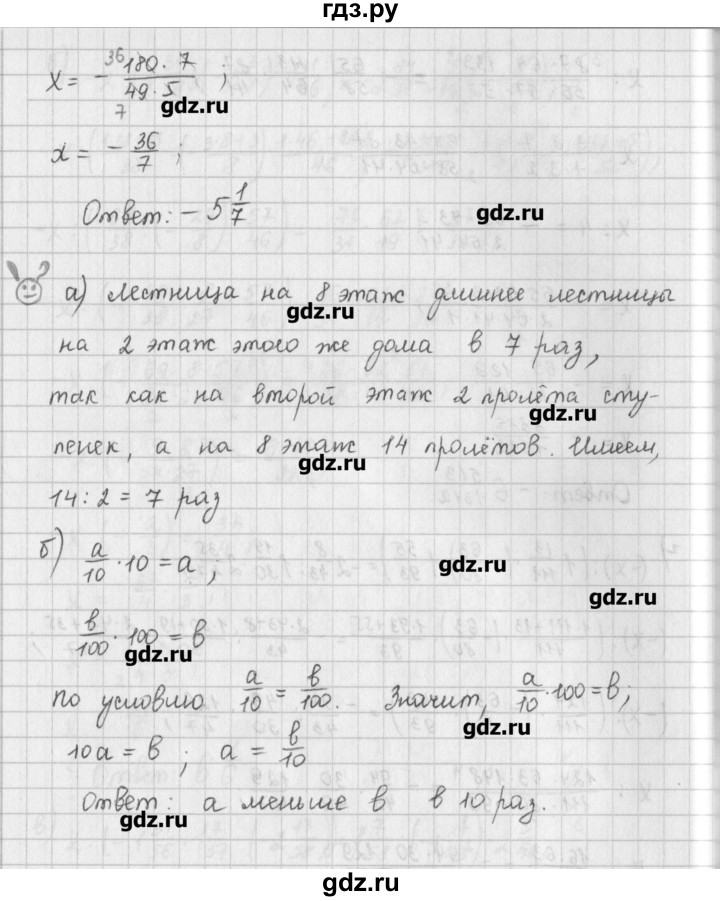 гдз.ру
x = - 36 180 · 7 / 49 · 5 7 ;
gdz.ru
x = - 36/7 ;
Ответ: - 5 1/7
gdz.ru
а) Лестница на 8 этаж длиннее лестницы
gdz.ru
на 2 этаж этого же дома в 7 раз,
так как на второй этаж 2 пролёта сту-
gdz.ru
пенек, а на 8 этаж 14 пролётов. Имеем,
gdz.ru
14 : 2 = 7 раз
б) a/10 · 10 = a ,
gdz.ru
gdz.ru
в/100 · 100 = в
gdz.ru
по условию a/10 = в/100. Значит, a/10 · 100 = в;
gdz.ru
10a = в ; a = в/10
Ответ: a меньше в в 10 раз.
gdz.ru
gdz.ru